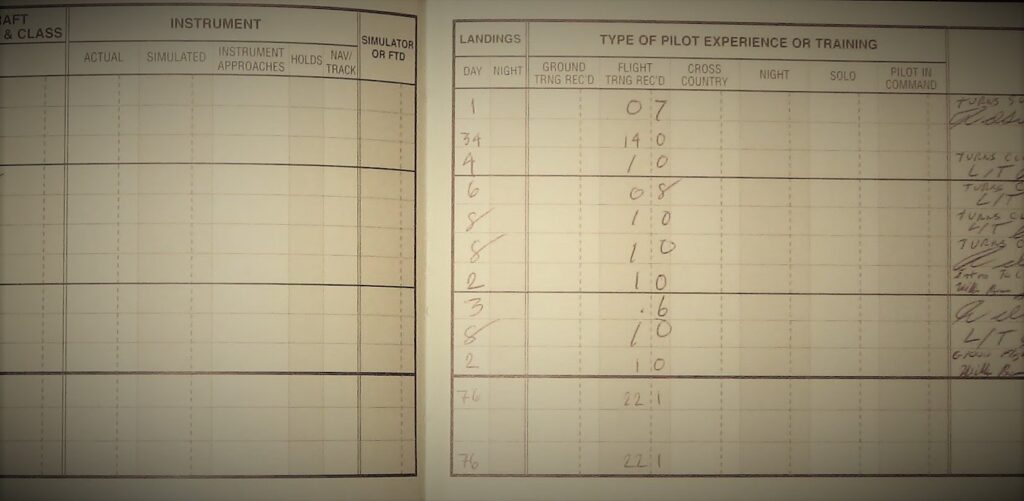 RAFT
& CLASS
INSTRUMENT
SIMULATOR
OR FTD
ACTUAL SIMULATED INSTRUMENT
APPROACHES HOLDS NAV/
TRACK
LANDINGS TYPE OF PILOT EXPERIENCE OR TRAINING
DAY NIGHT GROUND
TRNG REC'D FLIGHT
TRNG REC'D CROSS
COUNTRY NIGHT SOLO PILOT IN
COMMAND
1 0 7 TURNS
34 14 0
4 1 0 TURNS
L/T
6 0 8 TURNS
L/T
8 1 0 TURNS
L/T
8 1 0 TURNS
2 1 0
3 . 6
8 1 0 L/T
2 1 0
76 22 1
76 22 1